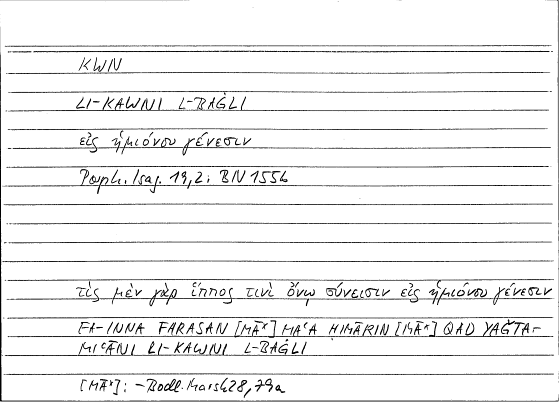 KWN
LI-KAWNI L-BAĠLI
εἰς ἡμιόνου γένεσιν
Porph. Isag. 19,2; BN 155b
τὶς μὲν γὰρ ἵππος τινὶ ὄνῳ σύνεισιν εἰς ἡμιόνου γένεσιν
FA-INNA FARASAN [MĀˣ] MAʿA ḤIMĀRIN [MĀˣ] QAD YAĞTA-
MIʿĀNI LI-KAWNI L-BAĠLI
[MĀˣ]: -Bodl. Marsh 28, 79a